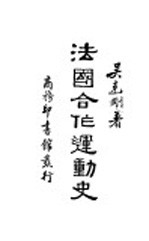 吳克剛著
法國合作運動史
商務印書館發行